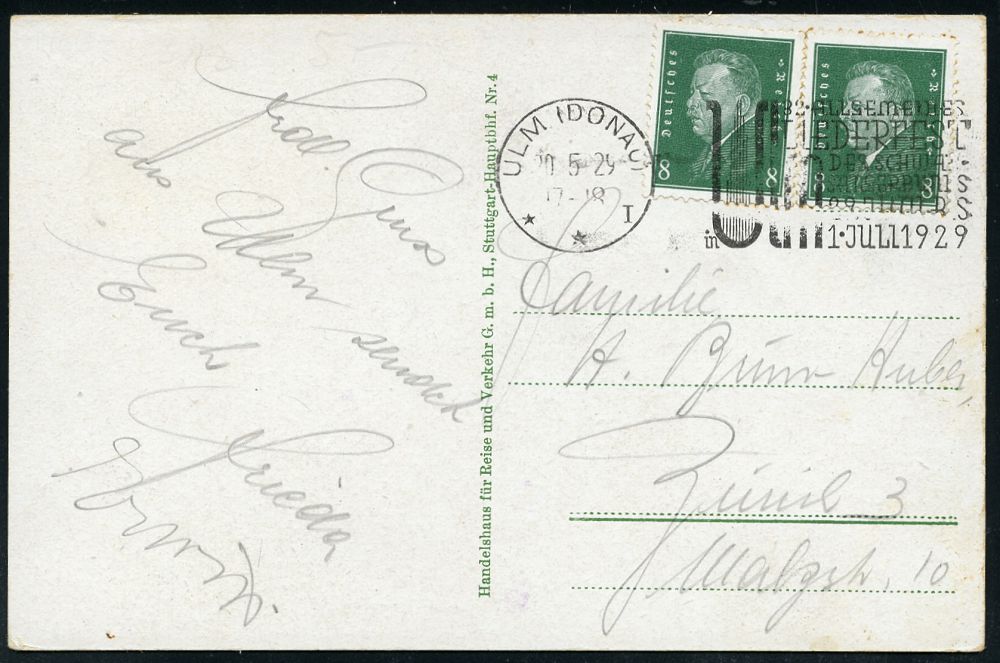 Frdl. Gruss
aus Ulm sendet
Euch Frieda
Handelshaus für Reise und Verkehr G. m. b. H., Stuttgart-Hauptbhf. Nr. 4
Deutsches Reich
8 8
Deutsches Reich
8
ULM (DONAU)
20.5.29
17-18
I
32. ALLGEMEINES
LIEDERFEST
DES SCHWÄB.
SÄNGERBUNDES
29. JUNI U.
in Ulm 1. JULI 1929
Familie
A. Huber,
Zürich 3
10